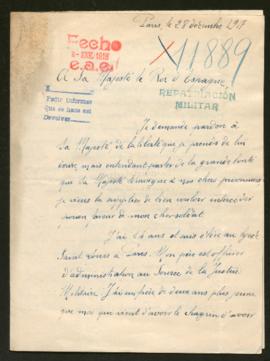 Paris, le 28 décembre 1917
Fecho
2-ENE-1918
e.a.e.
X 11889
A Sa Majesté le Roi d'Espagne
REPATRIACIÓN
MILITAR
Pedir informes
Que se haga así
Devolver
Je demande pardon à
Sa Majesté de la liberté que je prends de lui
écrire, mais entendant parler de la grande bonté
que Sa Majesté témoigne à nos chers prisonniers
je viens la supplier de bien vouloir intercéder
en faveur de mon cher soldat.
J'ai ans et suis élève au lycée
Saint Louis à Paris. Mon père est officier
d'administration au Service de la Justice
Militaire. J'ai un frère de deux ans plus jeune
que moi qui vient d'avoir le chagrin d'avoir